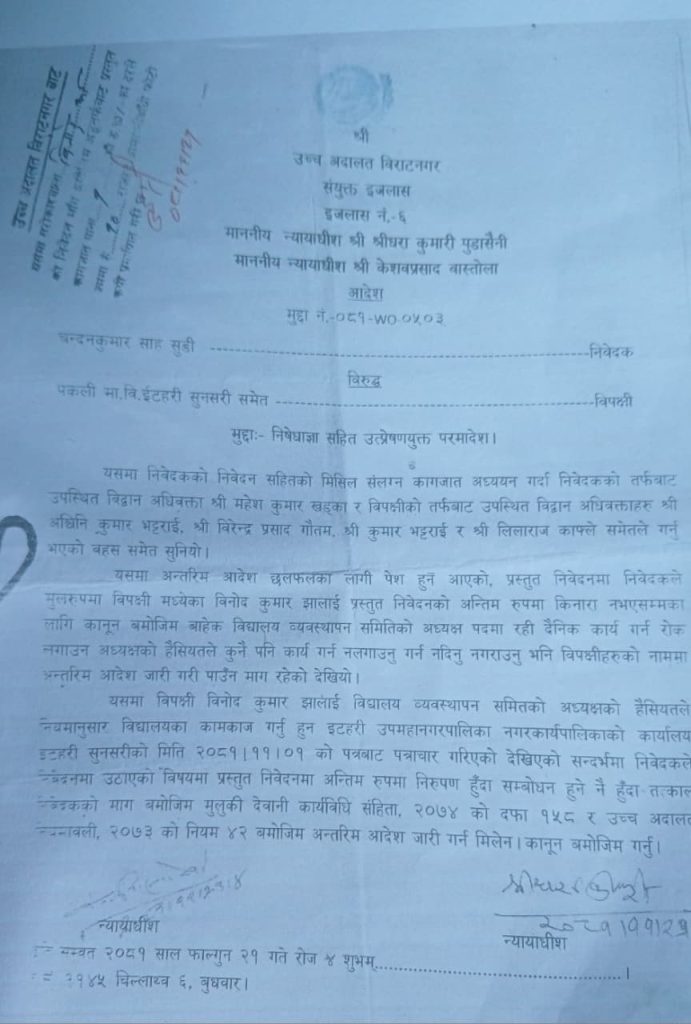 उच्च अदालत विराटनगर बाट
श्री
उच्च अदालत विराटनगर
संयुक्त इजलास
इजलास नं.-६
माननीय न्यायाधीश श्री श्रीधरा कुमारी पुडासैनी
माननीय न्यायाधीश श्री केशवप्रसाद वास्तोला
आदेश
मुद्दा नं.-०८१-WO-०५०३
चन्दनकुमार साह सुडी ----------निवेदक
विरुद्ध
पकली मा.वि.ईटहरी सुनसरी समेत ----------विपक्षी
मुद्दाः- निषेधाज्ञा सहित उत्प्रेषणयुक्त परमादेश।
यसमा निवेदकको निवेदन सहितको मिसिल संलग्न कागजात अध्ययन गर्दा निवेदकको तर्फबाट
उपस्थित विद्वान अधिवक्ता श्री महेश कुमार खड्का र विपक्षीको तर्फबाट उपस्थित विद्वान अधिवक्ताहरु श्री
अश्विनि कुमार भट्टराई, श्री विरेन्द्र प्रसाद गौतम, श्री कुमार भट्टराई र श्री लिलाराज काफ्ले समेतले गर्नु
भएको वहस समेत सुनियो।
यसमा अन्तरिम आदेश छलफलका लागी पेश हुन आएको, प्रस्तुत निवेदनमा निवेदकले
मुलरुपमा विपक्षी मध्येका विनोद कुमार झालाई प्रस्तुत निवेदनको अन्तिम रुपमा किनारा नभएसम्मका
लागि कानून बमोजिम बाहेक विद्यालय व्यवस्थापन समितिको अध्यक्ष पदमा रही दैनिक कार्य गर्न रोक
लगाउन अध्यक्षको हैसियतले कुनै पनि कार्य गर्न नलगाउनु गर्न नदिनु नगराउनु भनि विपक्षीहरुको नाममा
अन्तरिम आदेश जारी गरी पाउँन माग रहेको देखियो।
यसमा विपक्षी विनोद कुमार झालाई विद्यालय व्यवस्थापन समितको अध्यक्षको हैसियतले
नियमानुसार विद्यालयका कामकाज गर्नु हुन इटहरी उपमहानगरपालिका नगरकार्यपालिकाको कार्यालय
इटहरी सुनसरीको मिति २०८१|११|०१ को पत्रबाट पत्राचार गरिएको देखिएको सन्दर्भमा निवेदकले
निवेदनमा उटाएको विषयमा प्रस्तुत निवेदनमा अन्तिम रुपमा निरुपण हुँदा सम्बोधन हुने नै हुँदा तत्काल
निवेदकको माग बमोजिम मुलुकी देवानी कार्यविधि संहिता, २०७४ को दफा १५८ र उच्च अदालत
नियमावली, २०७३ को नियम ४२ बमोजिम अन्तरिम आदेश जारी गर्न मिलेन। कानून बमोजिम गर्नु।
२०८१|११|२१
न्यायाधीश
न्यायाधीश
सम्वत २०८१ साल फाल्गुन २१ गते रोज ४ शुभम्..........।
११४५ चिल्लाथ्व ६, बुधवार।